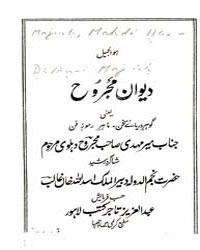 Majruh, Mahdi Hus
ہو الجمیل
Diwan Majruh
دیوان مجروح
یعنی
گوہر دریائے سخن۔ ماہر رموز فن
جناب میر مہدی صاحب مجروح دہلوی مرحوم
شاگرد رشید
حضرت نجم الدولہ دبیر الملک اسد اللہ خاں غالب
حسب فرمائش
عبد العزیز تاجر کتب لاہور